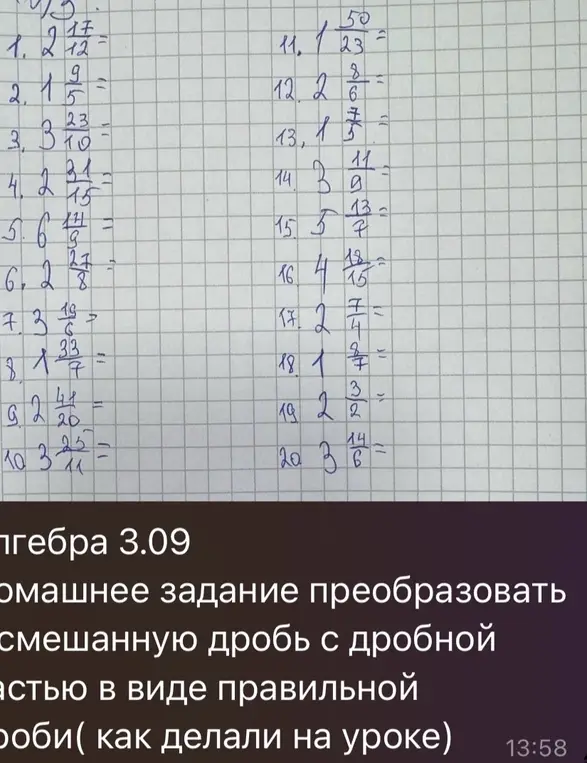 1. 2 17/12 =
2. 1 9/5 =
3. 3 23/10 =
4. 2 31/15 =
5. 6 14/9 =
6. 2 27/8 =
7. 3 19/6 =
8. 1 33/7 =
9. 2 41/20 =
10 3 25/11 =
11. 1 50/23 =
12. 2 8/6 =
13. 1 7/5 =
14. 3 11/9 =
15. 5 13/7 =
16. 4 18/15 =
17. 2 7/4 =
18. 1 8/7 =
19 2 3/2 =
20 3 14/6 =
лгебра 3.09
омашнее задание преобразовать
смешанную дробь с дробной
астью в виде правильной
роби( как делали на уроке)
13:58